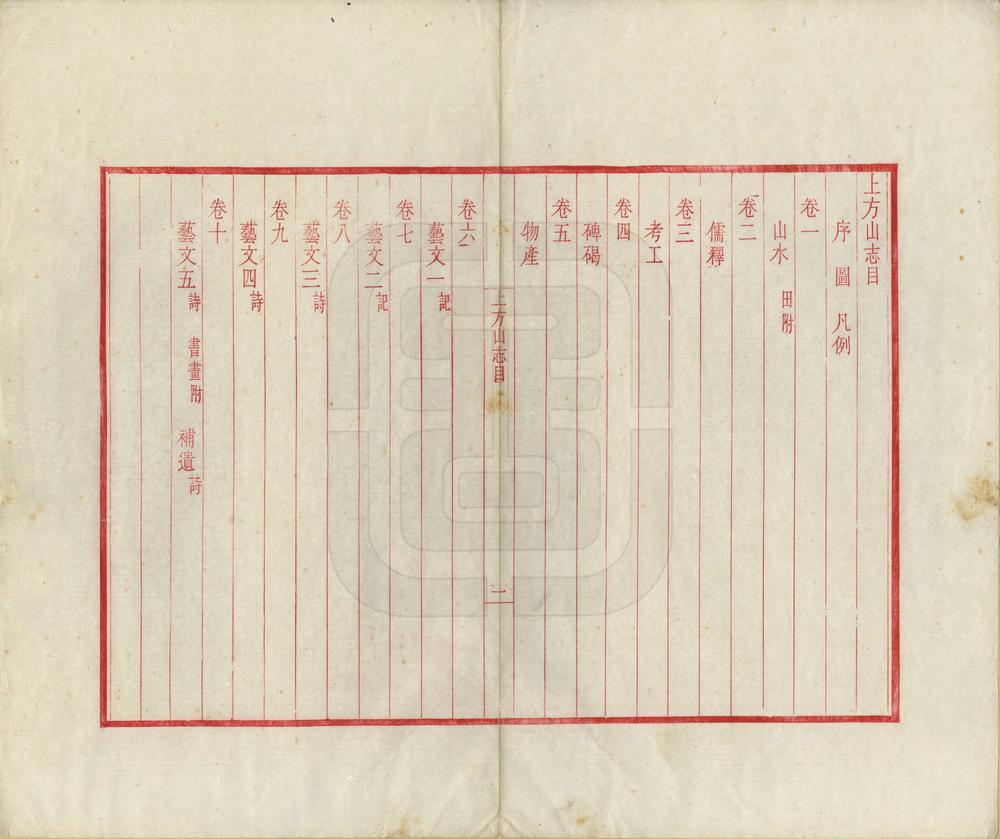 上方山志目
序 圖 凡例
卷一
山水 田附
卷二
儒釋
卷三
考工
卷四
碑碣
卷五
物產
上方山志目 一
卷六
藝文一 記
卷七
藝文二 記
卷八
藝文三 詩
卷九
藝文四 詩
卷十
藝文五 詩 書畫附 補遺 詩